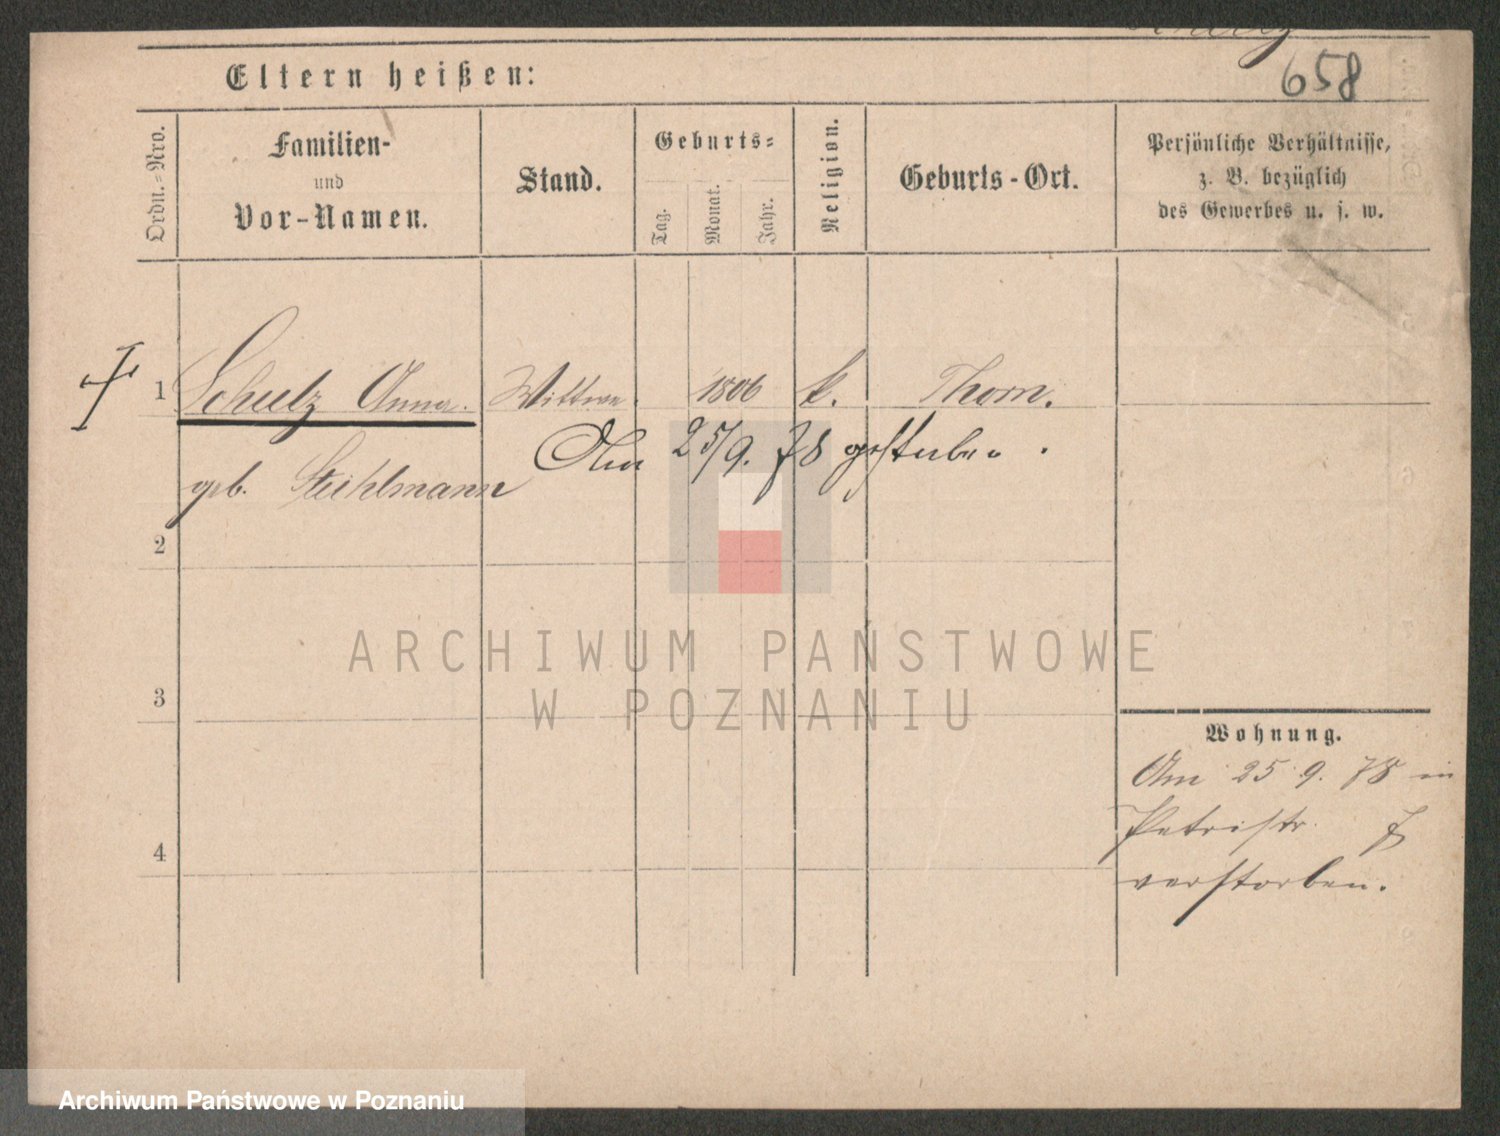 658
Eltern heißen:
Ordn.-Nro.
Familien-
und
Vor-Namen.
Stand.
Geburts-
Tag.
Monat.
Jahr.
Religion.
Geburts-Ort.
Persönliche Verhältnisse,
z. B. bezüglich
des Gewerbes u. s. w.
1 Schulz Anna. Wittwe. 1806 k. Thorn.
Am 25/9. 78 gestorben.
geb. Steihlmann
2
3
4
Wohnung.
Am 25 9. 78 in
Petristr. 7
verstorben.
ARCHIWUM PAŃSTWOWE
W POZNANIU
Archiwum Państwowe w Poznaniu